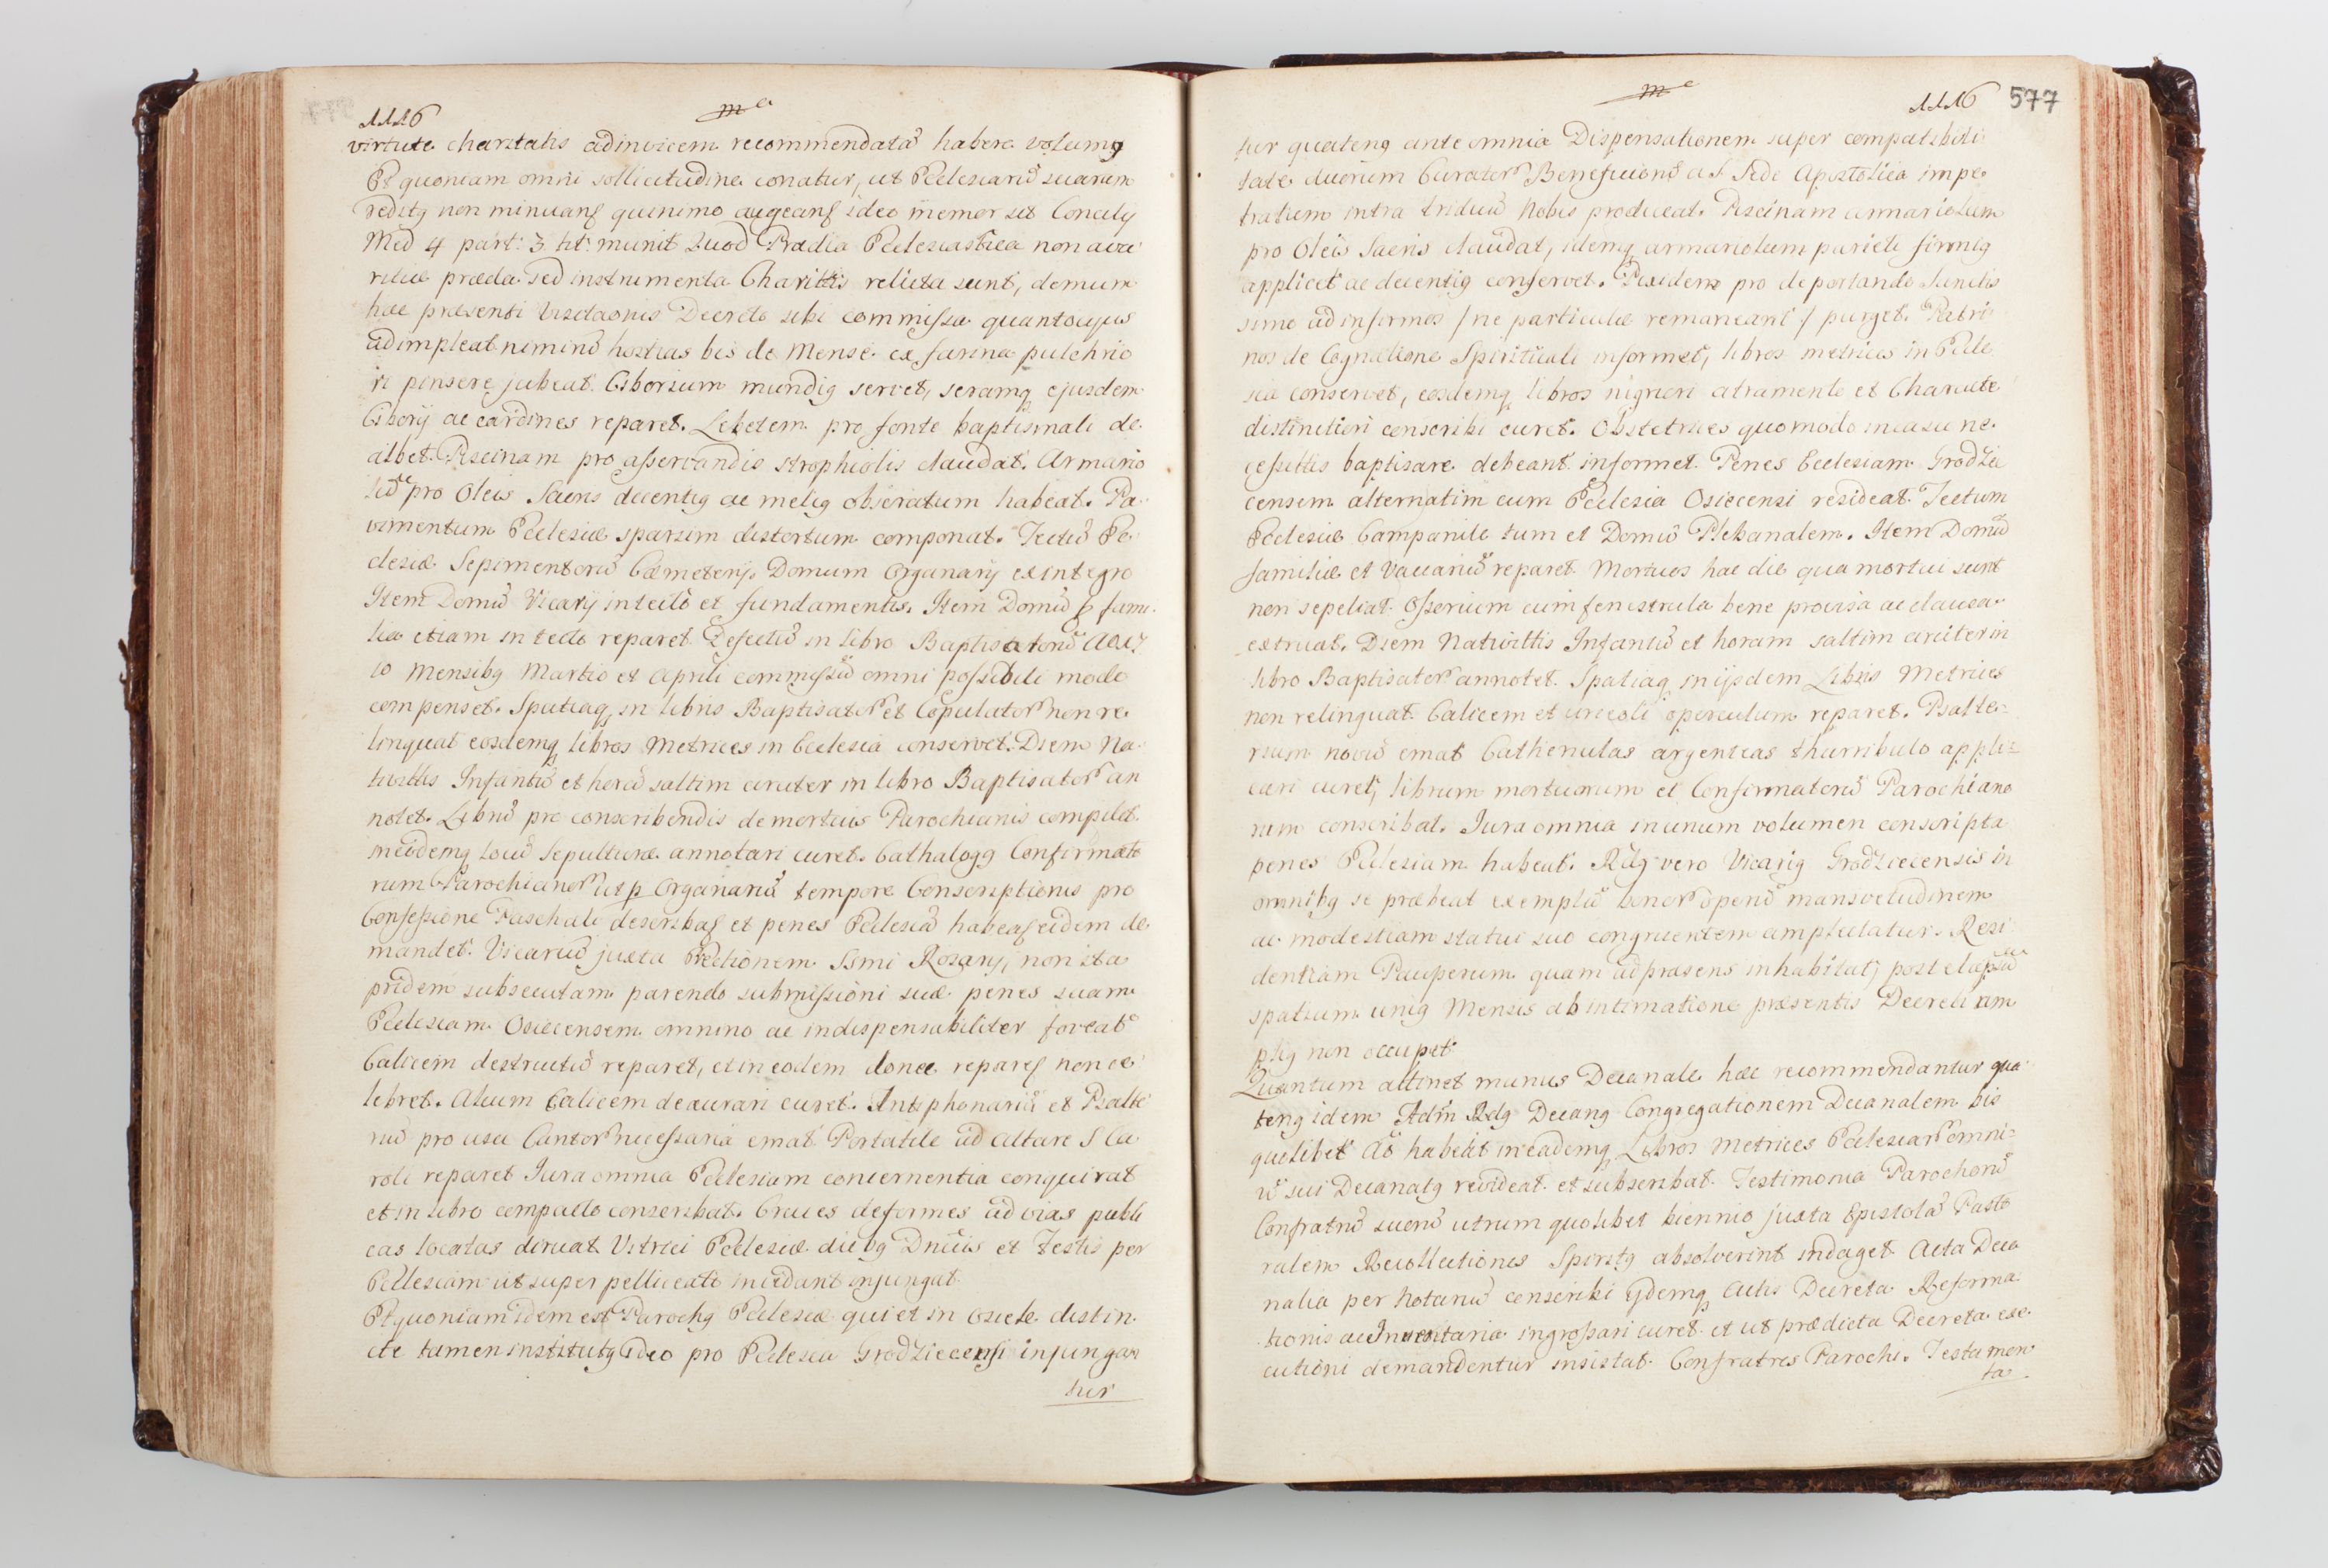 1116
virtute charitatis adinvicem recommendatã habere volumꝰ
Et quoniam omni sollicitudine conatur, ut Ecclesiarũ suarum
reditꝰ non minuanʃ quinimo augeanʃ ideo memor sit Concilij
Med 4 part: 3 tit: munit Quod Prædia Ecclesiastica non ava
ritiæ præda sed instrumenta Charittis relicta sunt, demum
hac præsenti Visitaonis Decreto sibi commissa quantocyus
adimpleat niminũ hostias bis de Mense ex farina pulchrio
ri pinsere jubeat. Ciborium mundiꝰ servet, seramq ejusdem
Ciborij ac cardines reparet. Lebetem pro fonte baptismali de
albet. Piscinam pro asservandis strophiolis claudat. Armario
lũ pro Oleis Sacris decentiꝰ ac meliꝰ obseratum habeat. Pa
vimentum Ecclesiæ sparsim distortum componat. Tectũ Ec
clesiæ Sepimentorũ Cæmeterij Domum Organarij ex integro
Item Domũ Vicarij in tecto et fundamentis. Item Domũ p fami
lia etiam in tecto reparet. Defectũ in libro Baptisatorũ
io Mensibꝰ Martio et Aprili commissũ omni possibili modo
compenset. Spatiaq in libris Baptisator et Copulator non re
linquat eosdemq libros Metrices in Ecclesia conservet. Diem Na
tivittis Infantũ et horã saltim circiter in libro Baptisator an
notet. Librũ pro conscribendis demortuis Parochianis compilet
ineodemq locũ Sepulturæ annotari curet. Cathalogꝰ Confirmato
rum Parochianor ut p Organariũ tempore Conscriptionis pro
Confessione Paschali describaʃ et penes Ecclesiã habeaʃ eidem de
mandet. Vicariũ juxta Erectionem Ssmi Rosarij, non ita
pridem subsecutam parendo submissioni suæ penes suam
Ecclesiam Osiecensem omnino ac indispensabiliter foveat
Calicem destructũ reparet, et in eodem donec repareʃ non ce
lebret. Alium Calicem deaurari curet. Antiphonariũ et Psalte
riũ pro usu Cantor necessaria emat. Portatile ad Altare S Ca
roli reparet Jura omnia Ecclesiam concernentia conquirat
et in libro compacto conscribat. Cruces deformes ad vias publi
cas locatas diruat. Vitrici Ecclesiæ diebꝰ Dnicis et Festis per
Ecclesiam ut super pelliceati incedant injungat.
Et quoniam idem est Parochꝰ Ecclesiæ qui et in Osiek distin
cte tamen institutꝰ Ideo pro Ecclesia Grodziecensi injungan
tur
1116 577
tur quatenꝰ ante omnia Dispensationem super compatibili
tate duorum Curator Beneficiorũ a S Sede Apostolica impe
tratum intra triduũ Nobis producat. Piscinam armariolum
pro Oleis Sacris claudat, idemq armariolum parieti firmiꝰ
applicet ac decentiꝰ conservet. Pixidem pro deportando Sanctis
simo ad infirmos / ne particulæ remaneant / purget. Patri
nos de Cognatione Spirituali informet, libros metrices in Eccle
sia conservet, eosdemq libros nigriori atramento et Charactere
distinctiori conscribi curet. Obstetrices quomodo in casu ne
cessittis baptisare debeant informet. Penes Ecclesiam Grodzie
censem alternatim cum Ecclesia Osiecensi resideat. Tectum
Ecclesiæ Campanile tum et Domũ Plebanalem. Item Domũ
familiæ et Vaccariũ reparet. Mortuos hac die qua mortui sunt
non sepeliat. Osserium cum fenestrula bene provisa ac clausa
extruat. Diem Nativittis Infantũ et horam saltim circiter in
libro Baptisator annotet. Spatiaq in ijsdem Libris Metrices
non relinquat. Calicem et urceoli operculum reparet. Psalte
rium novũ emat Cathenulas argenteas thurribulo appli
cari curet, librum mortuorum et Confirmatorũ Parochiano
rum conscribat. Jura omnia in unum volumen conscripta
penes Ecclesiam habeat. Rdꝰ vero Vicariꝰ Grodziecensis in
omnibꝰ se præbeat exemplũ bonor operũ mansvetudinem
ac modestiam statui suo congruentem amplectatur. Resi
dentiam Pauperum quam ad præsens inhabitat, post elapsũ
spatium uniꝰ Mensis ab intimatione præsentis Decreti am
pliꝰ non occupet.
Quantum attinet munus Decanale hæc recommendantur qua
tenꝰ idem Adm Rdꝰ Decanꝰ Congregationem Decanalem bis
quolibet Aõ habeat in eademq Libros Metrices Ecclesiar omni
ũ sui Decanatꝰ revideat et subscribat. Testimonia Parochorũ
Confratrũ suorũ utrum quolibet biennio juxta Epistolã Pasto
ralem Recollectiones Spiritꝰ absolverint indaget. Acta Deca
nalia per Notariũ conscribi ijdemq Actis Decreta Reforma
tionis ac Inventaria ingrossari curet et ut prædicta Decreta exe
cutioni demandentur insistat. Confratres Parochi. Testamen
ta